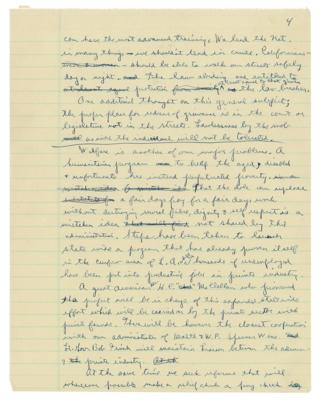 4
can have the most advanced training. We lead the Nat.
in many things - we shouldn't lead in crime. Californians
should be able to walk our streets safely
day or night. The law abiding are entitled to
at least as much protection as the law breakers.
One additional thought on this general subject;
the proper place for redress of grievance is in the court or
legislature not in the streets. Lawlessness by the mob
as with the individual will not be tolerated.
Welfare is another of our major problems. A
humanitarian program to help the aged & disabled
& unfortunate are instead perpetuated poverty
that the dole can replace
a fair days pay for a fair days work
without destroying moral fibre, dignity & self respect is a
mistaken idea not shared by this
administration. Steps have been taken to launch
state wide a program that has already proven itself
in the curfew area of L.A. thousands of unemployed
have been put into productive jobs in private industry.
A great American H.C. McClellan who pioneered
the project will be in charge of this expanded statewide
effort which will be carried on by the private sector with
private funds. There will be however the closest cooperation
with our administrator of Health & Welf. Spencer Wms. and
Lt. Gov. Bob Finch will maintain liaison between the admin.
& private industry.
At the same time we seek reforms that will
wherever possible make a relief check a pay check